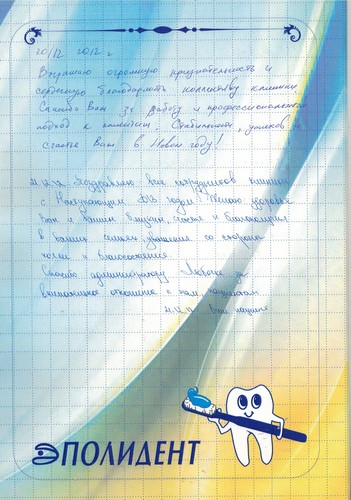 20/12 2012 г.
Выражаю огромную признательность и
сердечную благодарность коллективу клиники.
Спасибо Вам за работу и профессиональный
подход к клиентам. Стабильности, успехов и
счастья Вам в Новом году!
Поздравляю всех сотрудников клиники
с Наступающим 2013 годом! Желаю здоровья
Вам и Вашим близким, счастья и благополучия
в Ваших семьях, уважения со стороны
коллег и
Спасибо администратору Любови за
внимательное отношение к нам, пациентам
Ваш пациент
ПОЛИДЕНТ